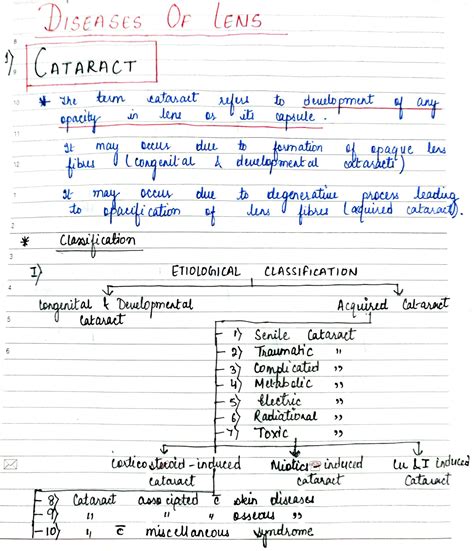 DISEASES OF LENS
1) CATARACT
* The term cataract refers to development of any
opacity in lens or its capsule.
It may occur due to formation of opaque lens
fibres (congenital & developmental cataracts)
It may occur due to degenerative process leading
to opacification of lens fibres (acquired cataract).
* Classification
I) ETIOLOGICAL CLASSIFICATION
Congenital & Developmental Cataract
Acquired Cataract
1) Senile Cataract
2) Traumatic "
3) Complicated "
4) Metabolic "
5) Electric "
6) Radiational "
7) Toxic "
Corticosteroid-induced cataract
Miotics-induced cataract
Cu & I induced Cataract
8) Cataract associated c̄ skin diseases
9) " " " osseous "
10) " c̄ miscellaneous syndrome